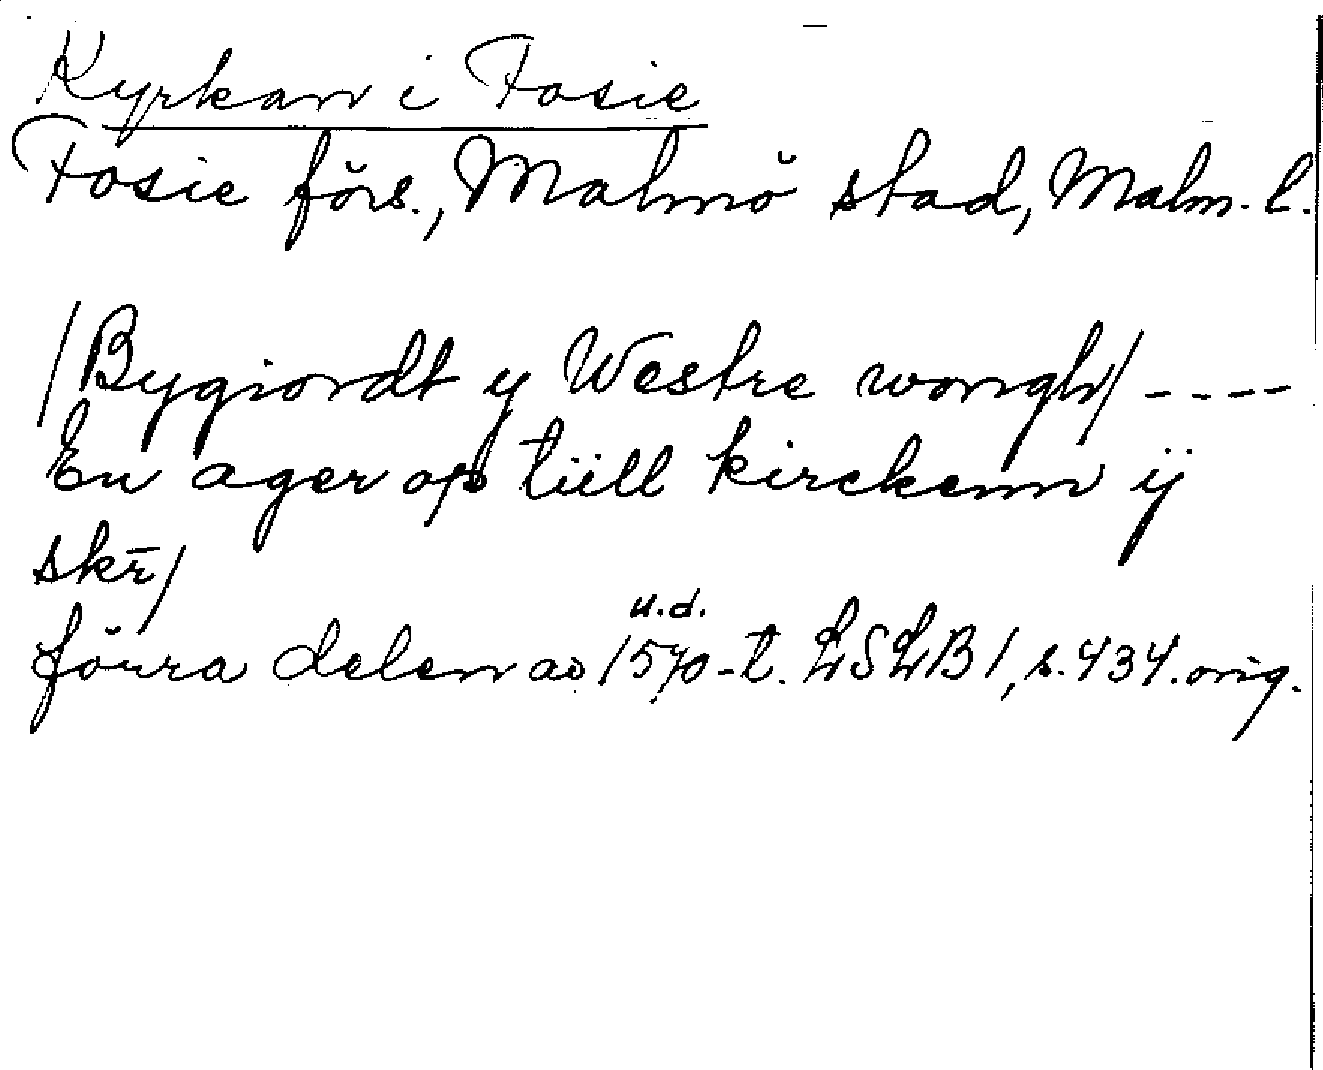 Kyrkan i Fosie
Fosie förs., Malmö stad, Malm. l.
/Bygiordt y Westre wongh/ ----
En ager op tiill kirckenn ÿ
skr̄/
förra delen av 1570-t. u.d. LSLB 1, s. 434. orig.